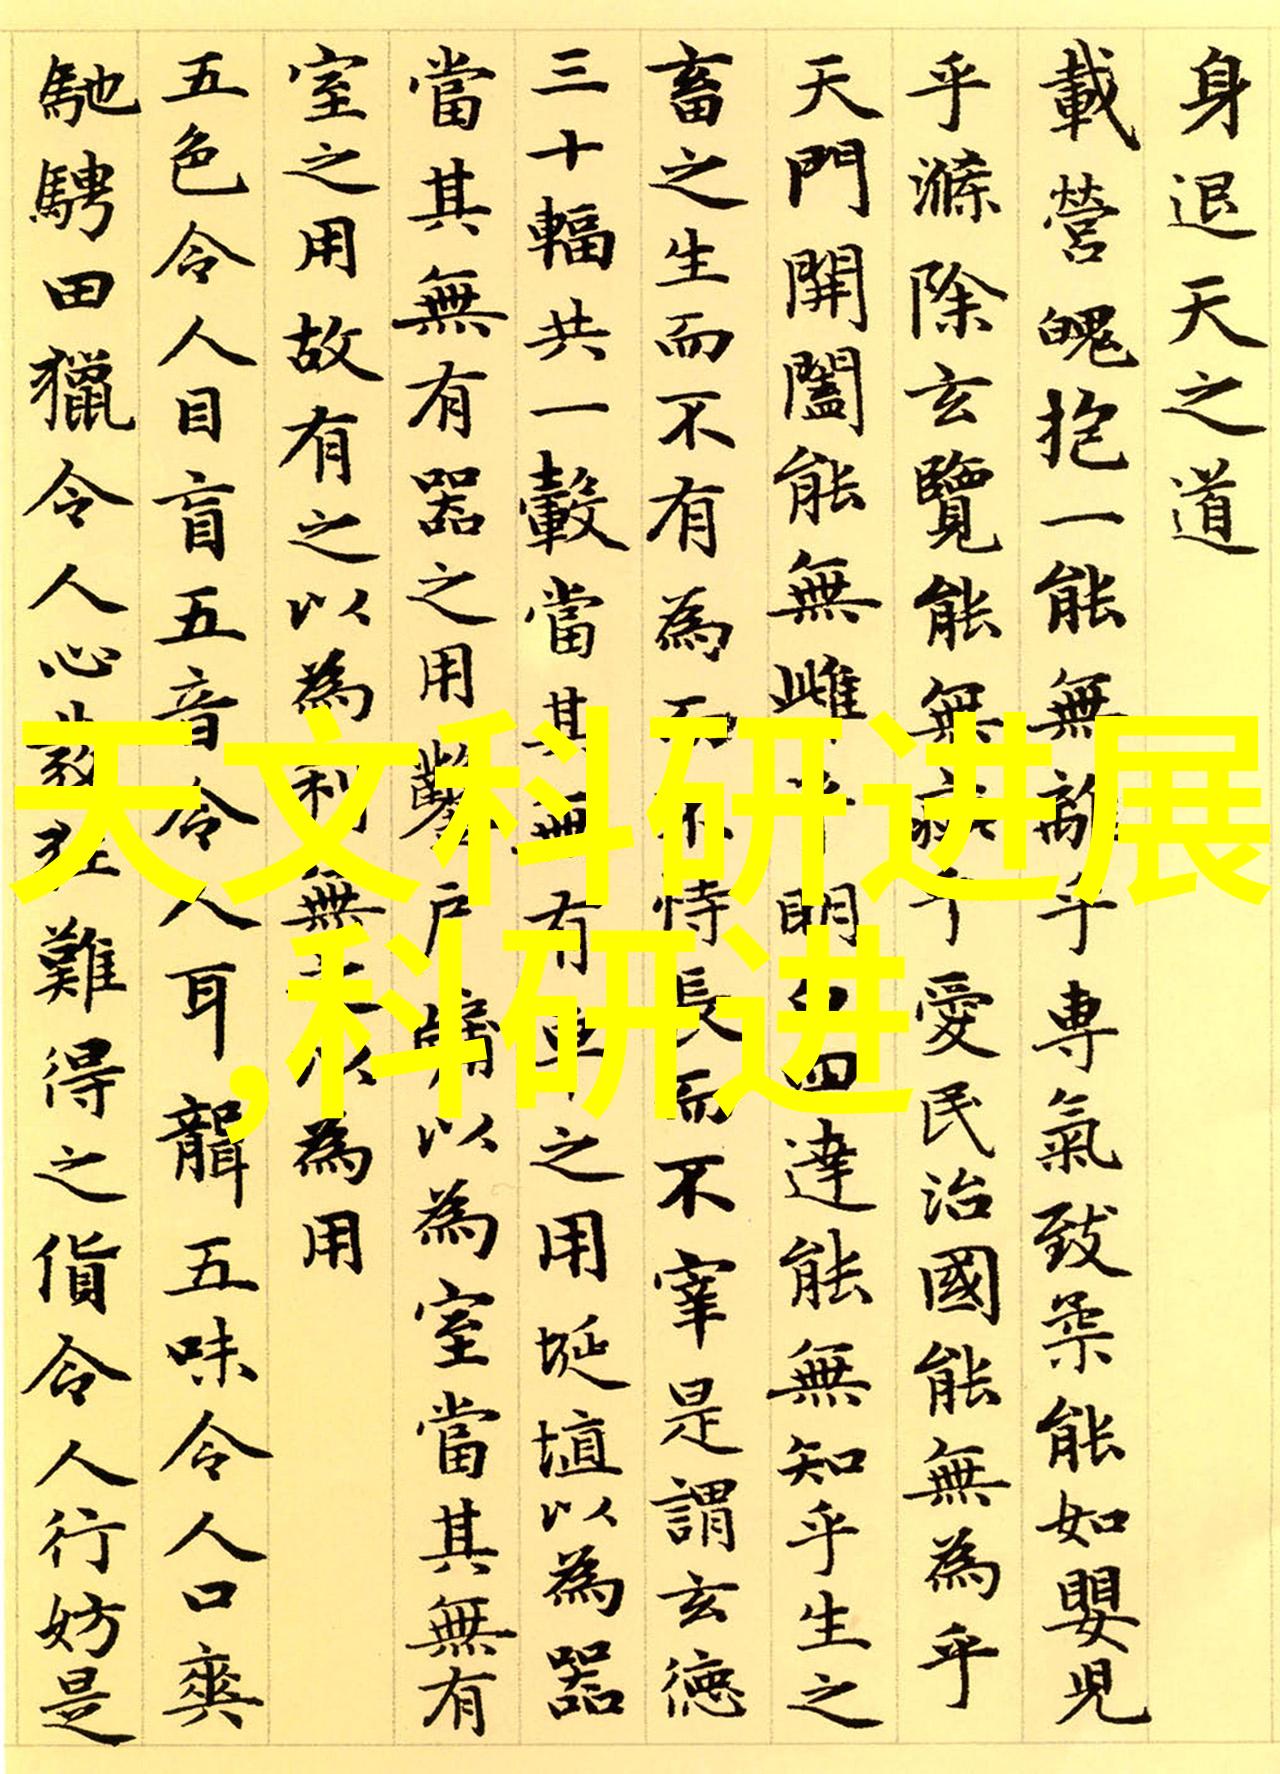 身退天之道
載營魄抱一能無離乎専氣致柔能如嬰児
乎滌除玄覽能無疵乎愛民治國能無為乎
天門開闔能無雌乎明白四達能無知乎生之
畜之生而不有為而不恃長而不宰是謂玄徳
三十輻共一轂當其無有車之用埏埴以為器
當其無有器之用鑿戶牖以為室當其無有
室之用故有之以為利無之以為用
五色令人目盲五音令人耳聾五味令人口爽
馳騁田獵令人心發狂難得之貨令人行妨是
天文科研进展
,科研进